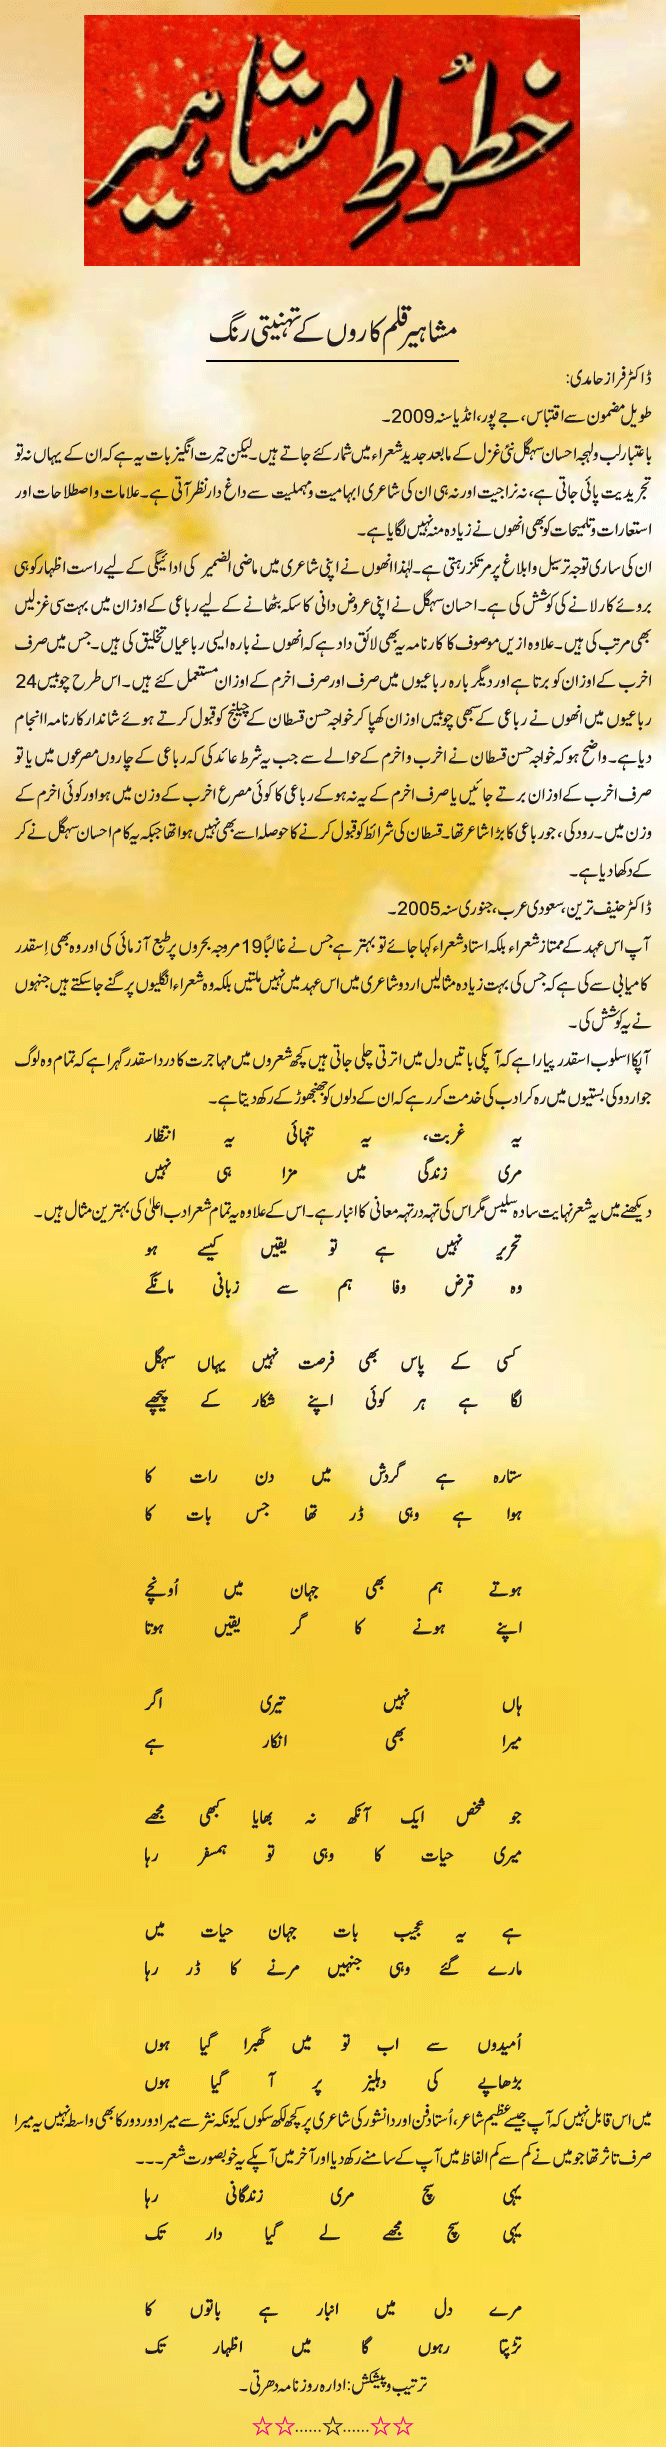 خطوطِ مشاہیر
مشاہیر قلم کاروں کے تہنیتی رنگ
ڈاکٹر فراز حامدی:
طویل مضمون سے اقتباس، جے پور، انڈیا سنہ 2009۔
باعتبار لب و لہجہ احسان سہگل نئی غزل کے مابعد جدید شعراء میں شمار کئے جاتے ہیں۔ لیکن حیرت انگیز بات یہ ہے کہ ان کے یہاں نہ تو
تجریدیت پائی جاتی ہے، نہ نراجیت اور نہ ہی ان کی شاعری ابہامیت و مہملیت سے داغ دار نظر آتی ہے۔ علامات و اصطلاحات اور
استعارات و تلمیحات کو بھی انھوں نے زیادہ منہ نہیں لگایا ہے۔
ان کی ساری توجہ ترسیل و ابلاغ پر مرتکز رہتی ہے۔ لہٰذا انھوں نے اپنی شاعری میں ماضی الضمیر کی ادائیگی کے لیے راست اظہار کو ہی
بروئے کار لانے کی کوشش کی ہے۔ احسان سہگل نے اپنی عروض دانی کا سکہ بٹھانے کے لیے رباعی کے اوزان میں بہت سی غزلیں
بھی مرتب کی ہیں۔ علاوہ ازیں موصوف کا کارنامہ یہ بھی لائق داد ہے کہ انھوں نے بارہ ایسی رباعیاں تخلیق کی ہیں۔ جس میں صرف
اخرب کے اوزان کو برتا ہے اور دیگر بارہ رباعیوں میں صرف اور صرف اخرم کے اوزان مستعمل کئے ہیں۔ اس طرح چوبیس 24
رباعیوں میں انھوں نے رباعی کے سبھی چوبیس اوزان کھپا کر خواجہ حسن قسطان کے چیلنج کو قبول کرتے ہوئے شاندار کارنامہ انجام
دیا ہے۔ واضح ہو کہ خواجہ حسن قسطان نے اخرب و اخرم کے حوالے سے جب یہ شرط عائد کی کہ رباعی کے چاروں مصرعوں میں یا تو
صرف اخرب کے اوزان برتے جائیں یا صرف اخرم کے یہ نہ ہو کے رباعی کا کوئی مصرع اخرب کے وزن میں ہو اور کوئی اخرم کے
وزن میں۔ رودکی، جو رباعی کا بڑا شاعر تھا۔ قسطان کی شرائط کو قبول کرنے کا حوصلہ اسے بھی نہیں ہوا تھا جبکہ یہ کام احسان سہگل نے کر
کے دکھا دیا ہے۔
ڈاکٹر حنیف ترین، سعودی عرب، جنوری سنہ 2005۔
آپ اس عہد کے ممتاز شعراء بلکہ استاد شعراء کہا جائے تو بہتر ہے جس نے غالباً 19 مروجہ بحروں پر طبع آزمائی کی اور وہ بھی اِسقدر
کامیابی سے کی ہے کہ جس کی بہت زیادہ مثالیں اردو شاعری میں اس عہد میں نہیں ملتیں بلکہ وہ شعراء انگلیوں پر گنے جاسکتے ہیں جنہوں
نے یہ کوشش کی۔
آپکا اسلوب اسقدر پیارا ہے کہ آپکی باتیں دل میں اترتی چلی جاتی ہیں کچھ شعروں میں مہاجرت کا درد اسقدر گہرا ہے کہ تمام وہ لوگ
جو اردو کی بستیوں میں رہ کر ادب کی خدمت کر رہے کہ ان کے دلوں کو جھنجھوڑ کے رکھ دیتا ہے۔
یہ غربت، یہ تنہائی یہ انتظار
مری زندگی میں مزا ہی نہیں
دیکھنے میں یہ شعر نہایت سادہ سلیس مگر اس کی تہہ در تہہ معانی کا انبار ہے۔ اس کے علاوہ یہ تمام شعر ادب اعلیٰ کی بہترین مثال ہیں۔
تحریر نہیں ہے تو یقیں کیسے ہو
وہ قرض وفا ہم سے زبانی مانگے
کسی کے پاس بھی فرصت نہیں یہاں سہگل
لگا ہے ہر کوئی اپنے شکار کے پیچھے
ستارہ ہے گردش میں دن رات کا
ہوا ہے وہی ڈر تھا جس بات کا
ہوتے ہم بھی جہان میں اُونچے
اپنے ہونے کا گر یقیں ہوتا
ہاں نہیں تیری اگر
میرا بھی انکار ہے
جو شخص ایک آنکھ نہ بھایا کبھی مجھے
میری حیات کا وہی تو ہمسفر رہا
ہے یہ عجیب بات جہان حیات میں
مارے گئے وہی جنہیں مرنے کا ڈر رہا
اُمیدوں سے اب تو میں گھبرا گیا ہوں
بڑھاپے کی دہلیز پر آ گیا ہوں
میں اس قابل نہیں کہ آپ جیسے عظیم شاعر، اُستاد فن اور دانشور کی شاعری پر کچھ لکھ سکوں کیونکہ نثر سے میرا دور دور کا بھی واسطہ نہیں یہ میرا
صرف تاثر تھا جو میں نے کم سے کم الفاظ میں آپ کے سامنے رکھ دیا اور آخر میں آپکے یہ خوبصورت شعر۔۔۔
یہی سچ مری زندگانی رہا
یہی سچ مجھے لے گیا دار تک
مرے دل میں انبار ہے باتوں کا
تڑپتا رہوں گا میں اظہار تک
ترتیب و پیشکش: ادارہ روزنامہ دھرتی۔
☆☆......☆......☆☆